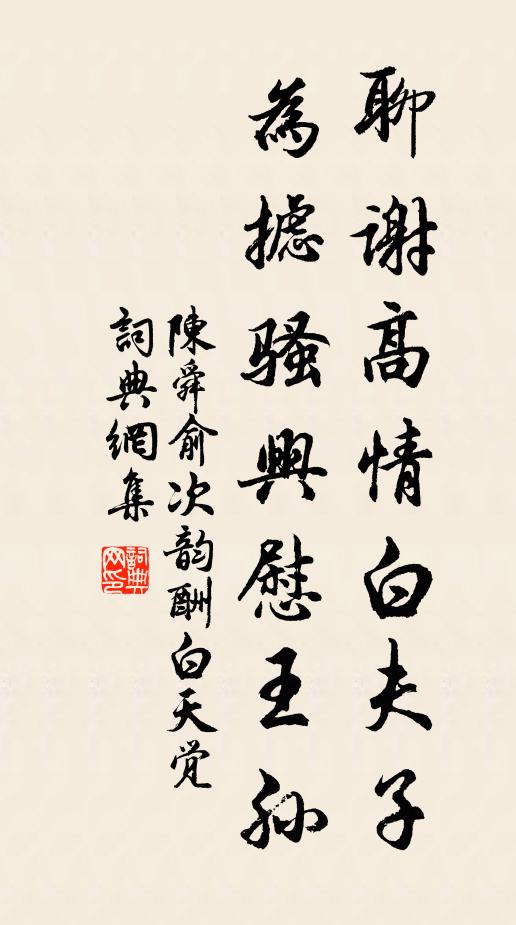 聊謝高情白夫子
為攄騷興慰王孫
陳舜俞次韵酬白天覺
詞典網集
詞典网印